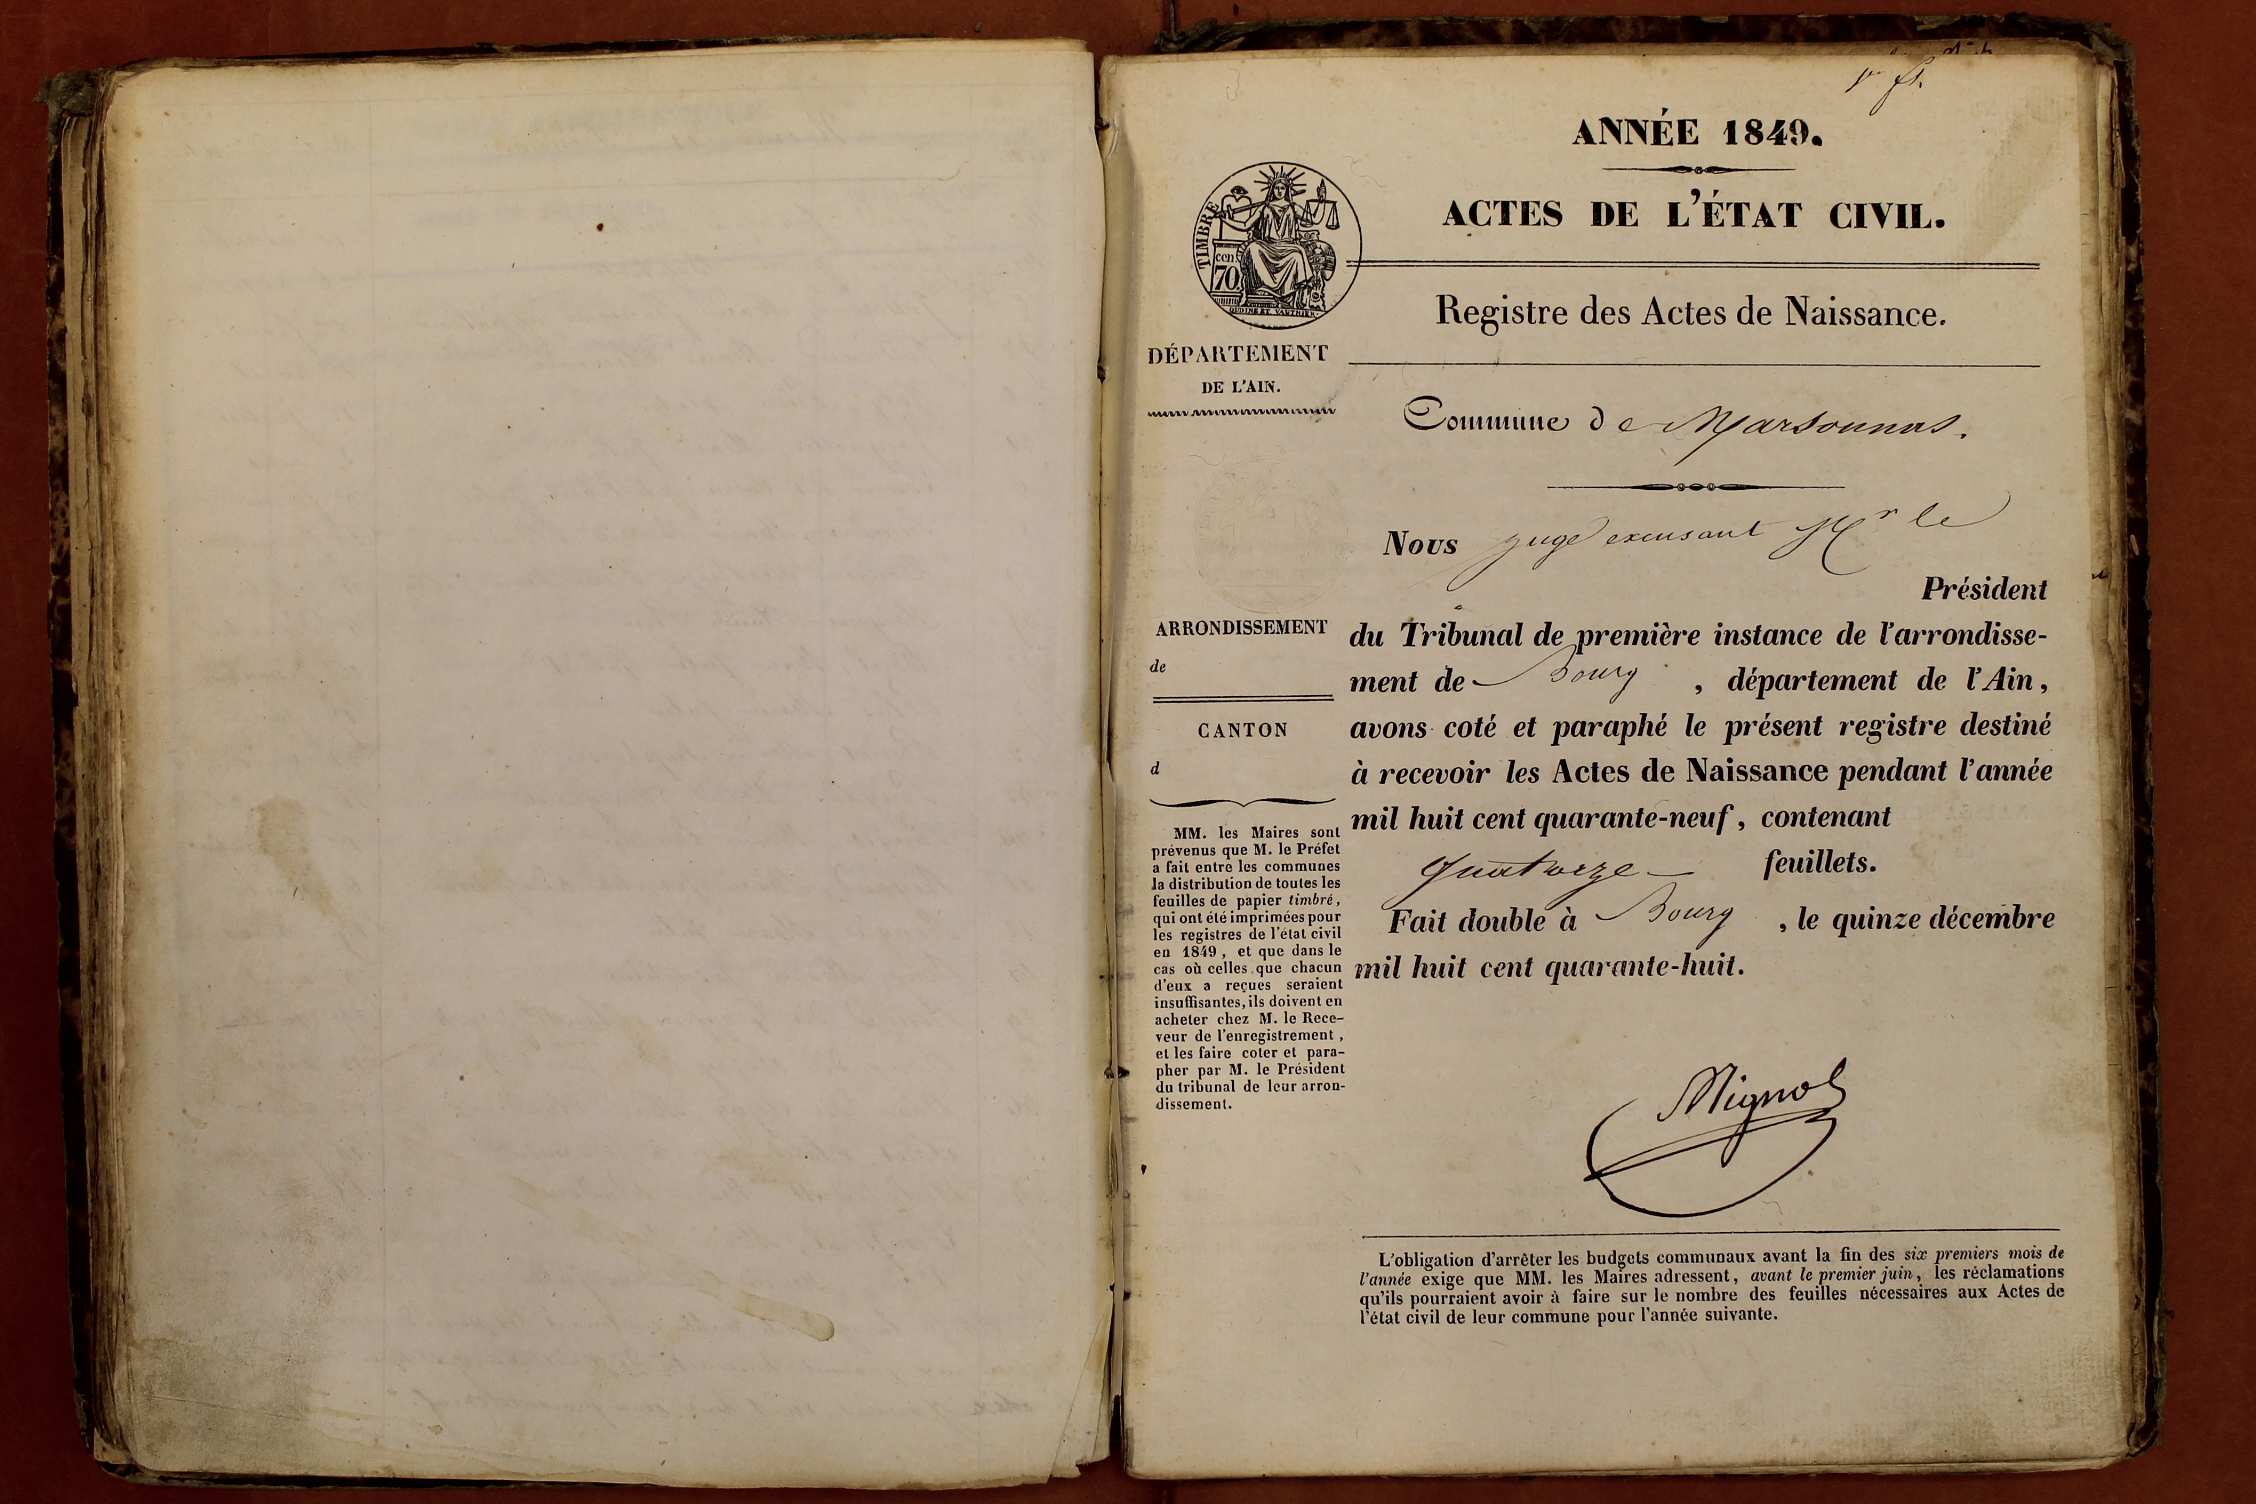 1er ft.
ANNÉE 1849.
ACTES DE L'ÉTAT CIVIL.
TIMBRE
cen.
70
Registre des Actes de Naissance.
DÉPARTEMENT
DE L'AIN.
Commune de Marsonnas.
Nous juge excusant Mr le
Président
du Tribunal de première instance de l'arrondisse-
ment de Bourg, département de l'Ain,
avons coté et paraphé le présent registre destiné
à recevoir les Actes de Naissance pendant l'année
mil huit cent quarante-neuf, contenant
quatorze feuillets.
Fait double à Bourg, le quinze décembre
mil huit cent quarante-huit.
Mignot
ARRONDISSEMENT
de
CANTON
d
MM. les Maires sont
prévenus que M. le Préfet
a fait entre les communes
la distribution de toutes les
feuilles de papier timbré,
qui ont été imprimées pour
les registres de l'état civil
en 1849, et que dans le
cas où celles que chacun
d'eux a reçues seraient
insuffisantes, ils doivent en
acheter chez M. le Rece-
veur de l'enregistrement,
et les faire coter et para-
pher par M. le Président
du tribunal de leur arron-
dissement.
L'obligation d'arrêter les budgets communaux avant la fin des six premiers mois de
l'année exige que MM. les Maires adressent, avant le premier juin, les réclamations
qu'ils pourraient avoir à faire sur le nombre des feuilles nécessaires aux Actes de
l'état civil de leur commune pour l'année suivante.